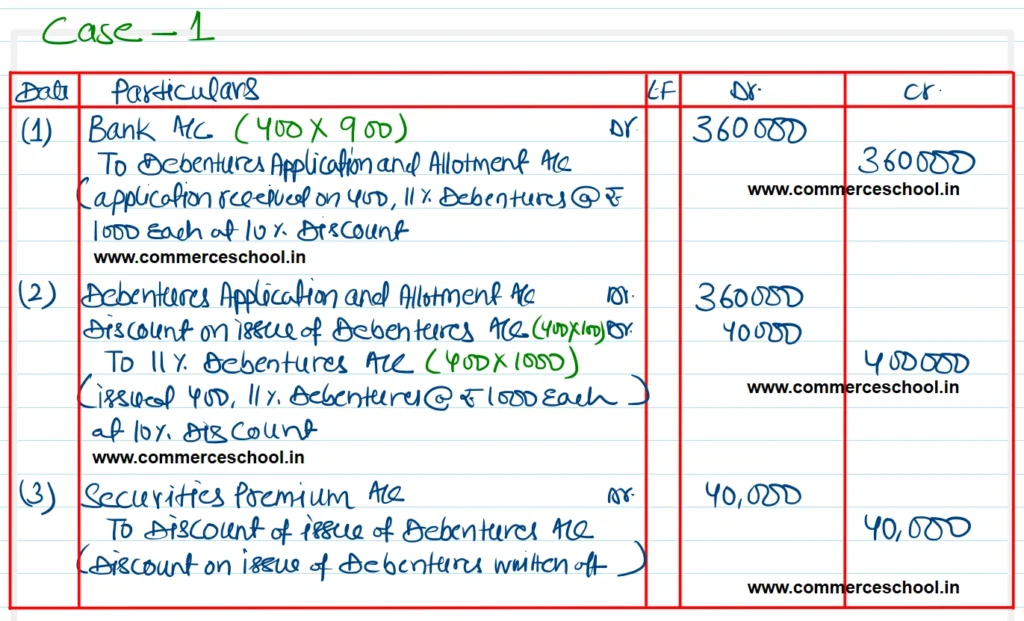 Case - 1
Date Particulars LF Dr. Cr.
(1) Bank A/c (400 X 900) Dr. 360000
To Debentures Application and Allotment A/c 360000
(application received on 400, 11% Debentures @ ₹ www.commerceschool.in
1000 Each at 10% Discount
www.commerceschool.in
(2) Debentures Application and Allotment A/c Dr. 360000
Discount on issue of Debentures A/c (400X100) Dr. 40000
To 11% Debentures A/c (400X1000) 400000
(issued 400, 11% Debentures @ ₹1000 Each ) www.commerceschool.in
at 10% Discount
www.commerceschool.in
(3) Securities Premium A/c Dr. 40,000
To Discount of issue of Debentures A/c 40,000
(Discount on issue of Debentures written off )
www.commerceschool.in